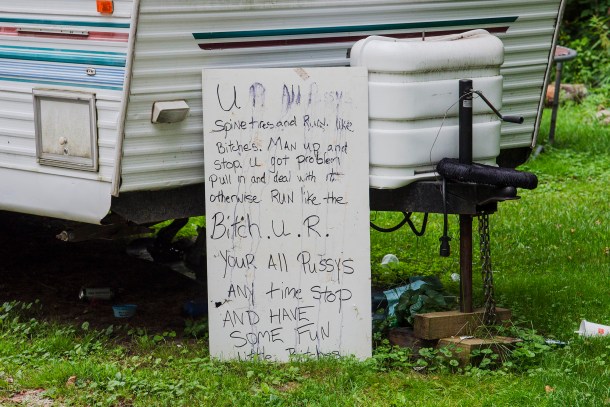 U R All Pussys
Spine tires and Run. like
Bitche's. MAN up and
stop. u got problem
Pull in and deal with it
otherwise RUN like the
Bitch. U. R.
YOUR All Pussys
ANY time stop
AND HAVE
SOME FUN
Little Bitches